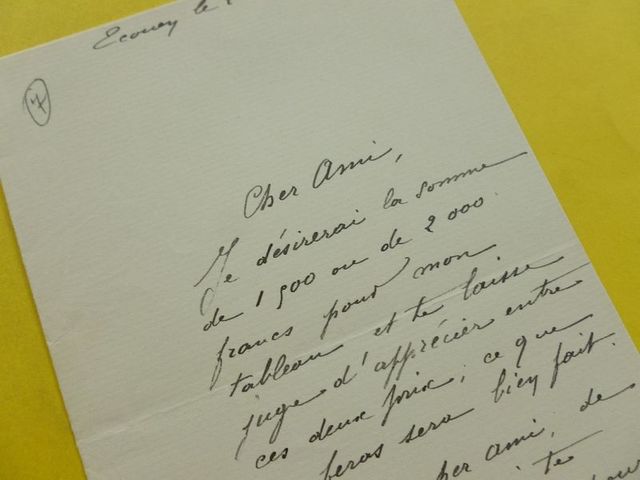 Ecouen le
7
Cher Ami,
Je désirerai la somme
de 1500 ou de 2000
francs pour mon
tableau et te laisse
juge d'apprécier entre
ces deux prix, ce que
feras sera bien fait.
cher ami, de
te